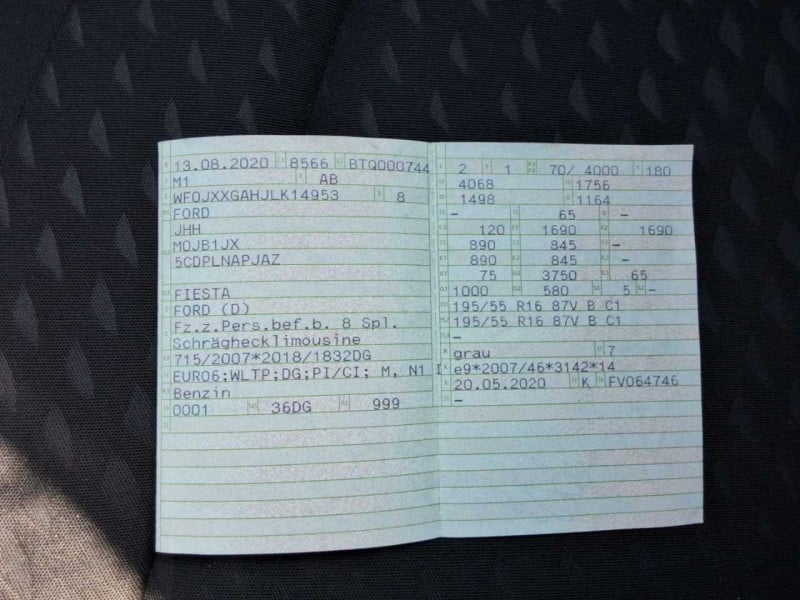 13.08.2020 8566 BTQ000744
M1 AB
WF0JXXGAHJLK14953 8
FORD
JHH
M0JB1JX
5CDPLNAPJAZ
FIESTA
FORD (D)
Fz.z.Pers.bef.b. 8 Spl.
Schräghecklimousine
715/2007*2018/1832DG
EURO6;WLTP;DG;PI/CI; M, N1 I
Benzin
0001 36DG 999
2 1 70/ 4000 180
4068 1756
1498 1164
- 65 -
120 1690 1690
890 845 -
890 845 -
75 3750 65
1000 580 5 -
195/55 R16 87V B C1
195/55 R16 87V B C1
-
grau 7
e9*2007/46*3142*14
20.05.2020 K FV064746
-